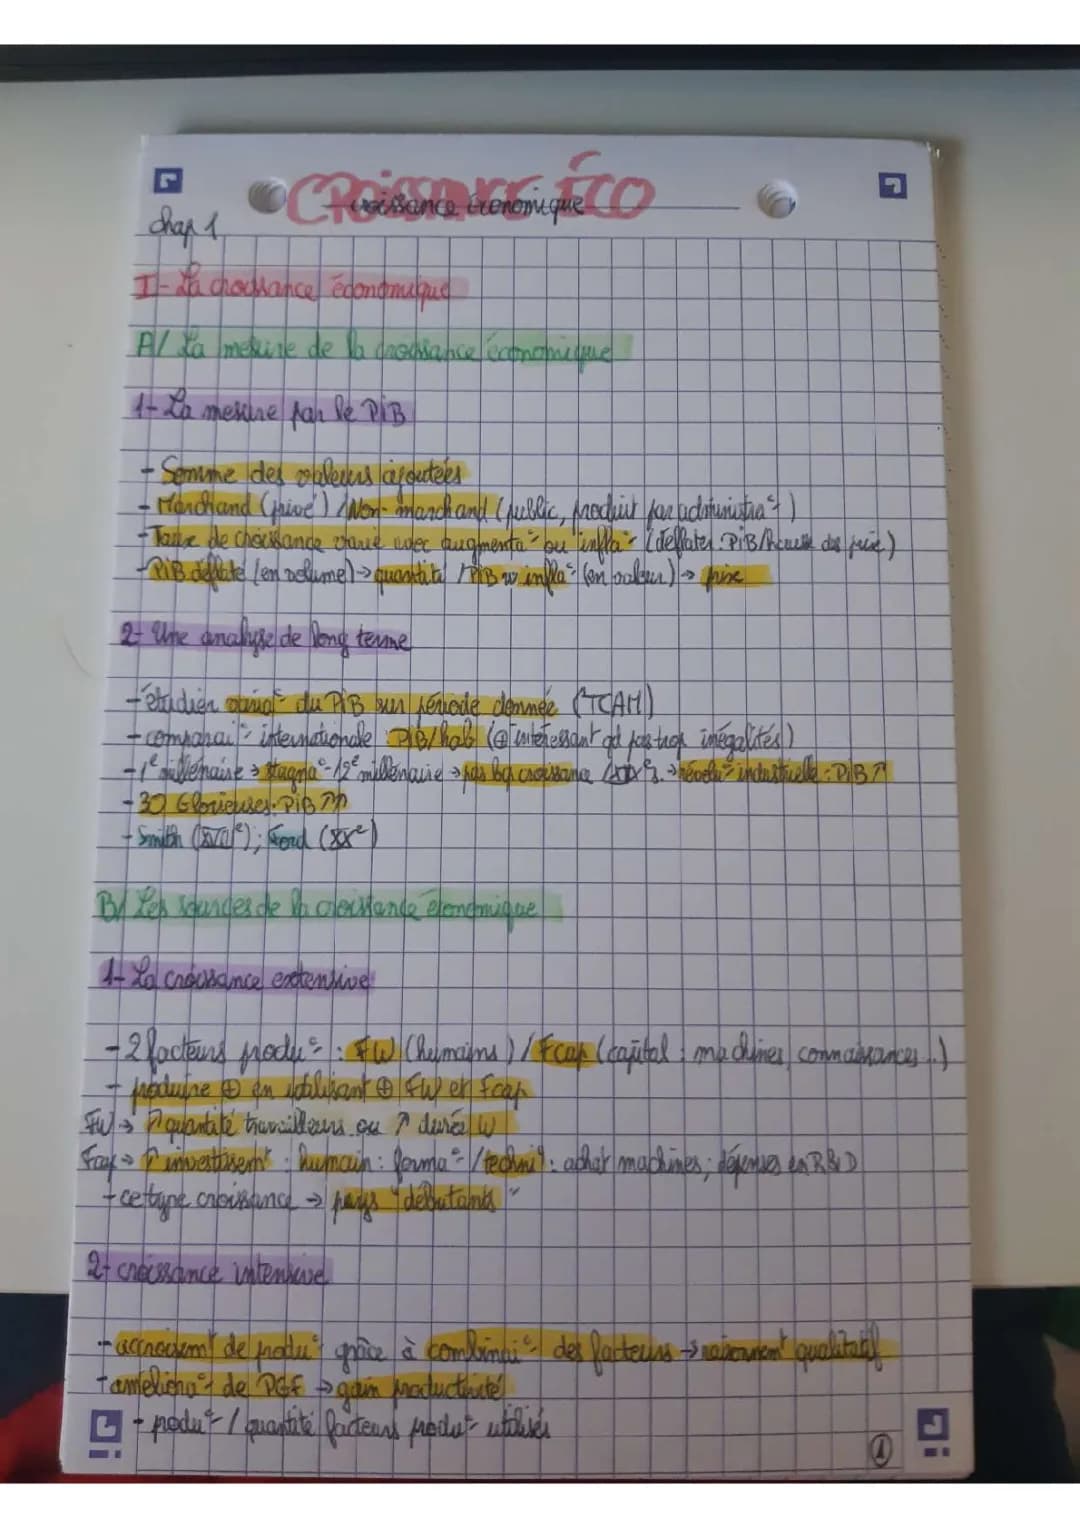 CROISSANCE ÉCO
Croissance économique
Chap 1
I- La croissance économique
A/ La mesure de la croissance économique
1- La mesure par le PiB
- Somme des valeurs ajoutées
- Marchand (privé) / Non-marchand (public, produit par administra°)
- Taux de croissance varie avec augmenta° ou "infla° (déflater: PiB/hausse des prix)
- PiB déflaté (en volume) → quantité / PiB w infla° (en valeur) → prix
2- Une analyse de long terme
- étudier variat° du PiB sur période donnée (TCAM)
- comparai° internationale PIB/hab (⊕ intéressant qd pas trop inégalités)
- 1e millénaire → stagna° - 2e millénaire → pas bcp croissance s. → révolu° industrielle: PiB ↗
- 30 Glorieuses: PiB ↗↗
- Smith ; Ford (XXe)
B/ Les sources de la croissance économique
1- La croissance extensive
- 2 facteurs produ° : FW (humains) / Fcap (capital : machines, connaissances..)
- produire ⊕ en utilisant ⊕ FW et Fcap
FW → ↗ quantité travailleurs ou ↗ durée W
Fcap → ↗ investissemt : humain: forma° / techni : achat machines; dépenses en R&D
- ce type croissance → pays "débutants"
2- croissance intensive
- accroissemt de produ° grâce à combinai° des facteurs → raisonnemt qualitatif
- améliora° de PGF → gain productivité
- produ° / quantité facteurs produ° utilisés
1